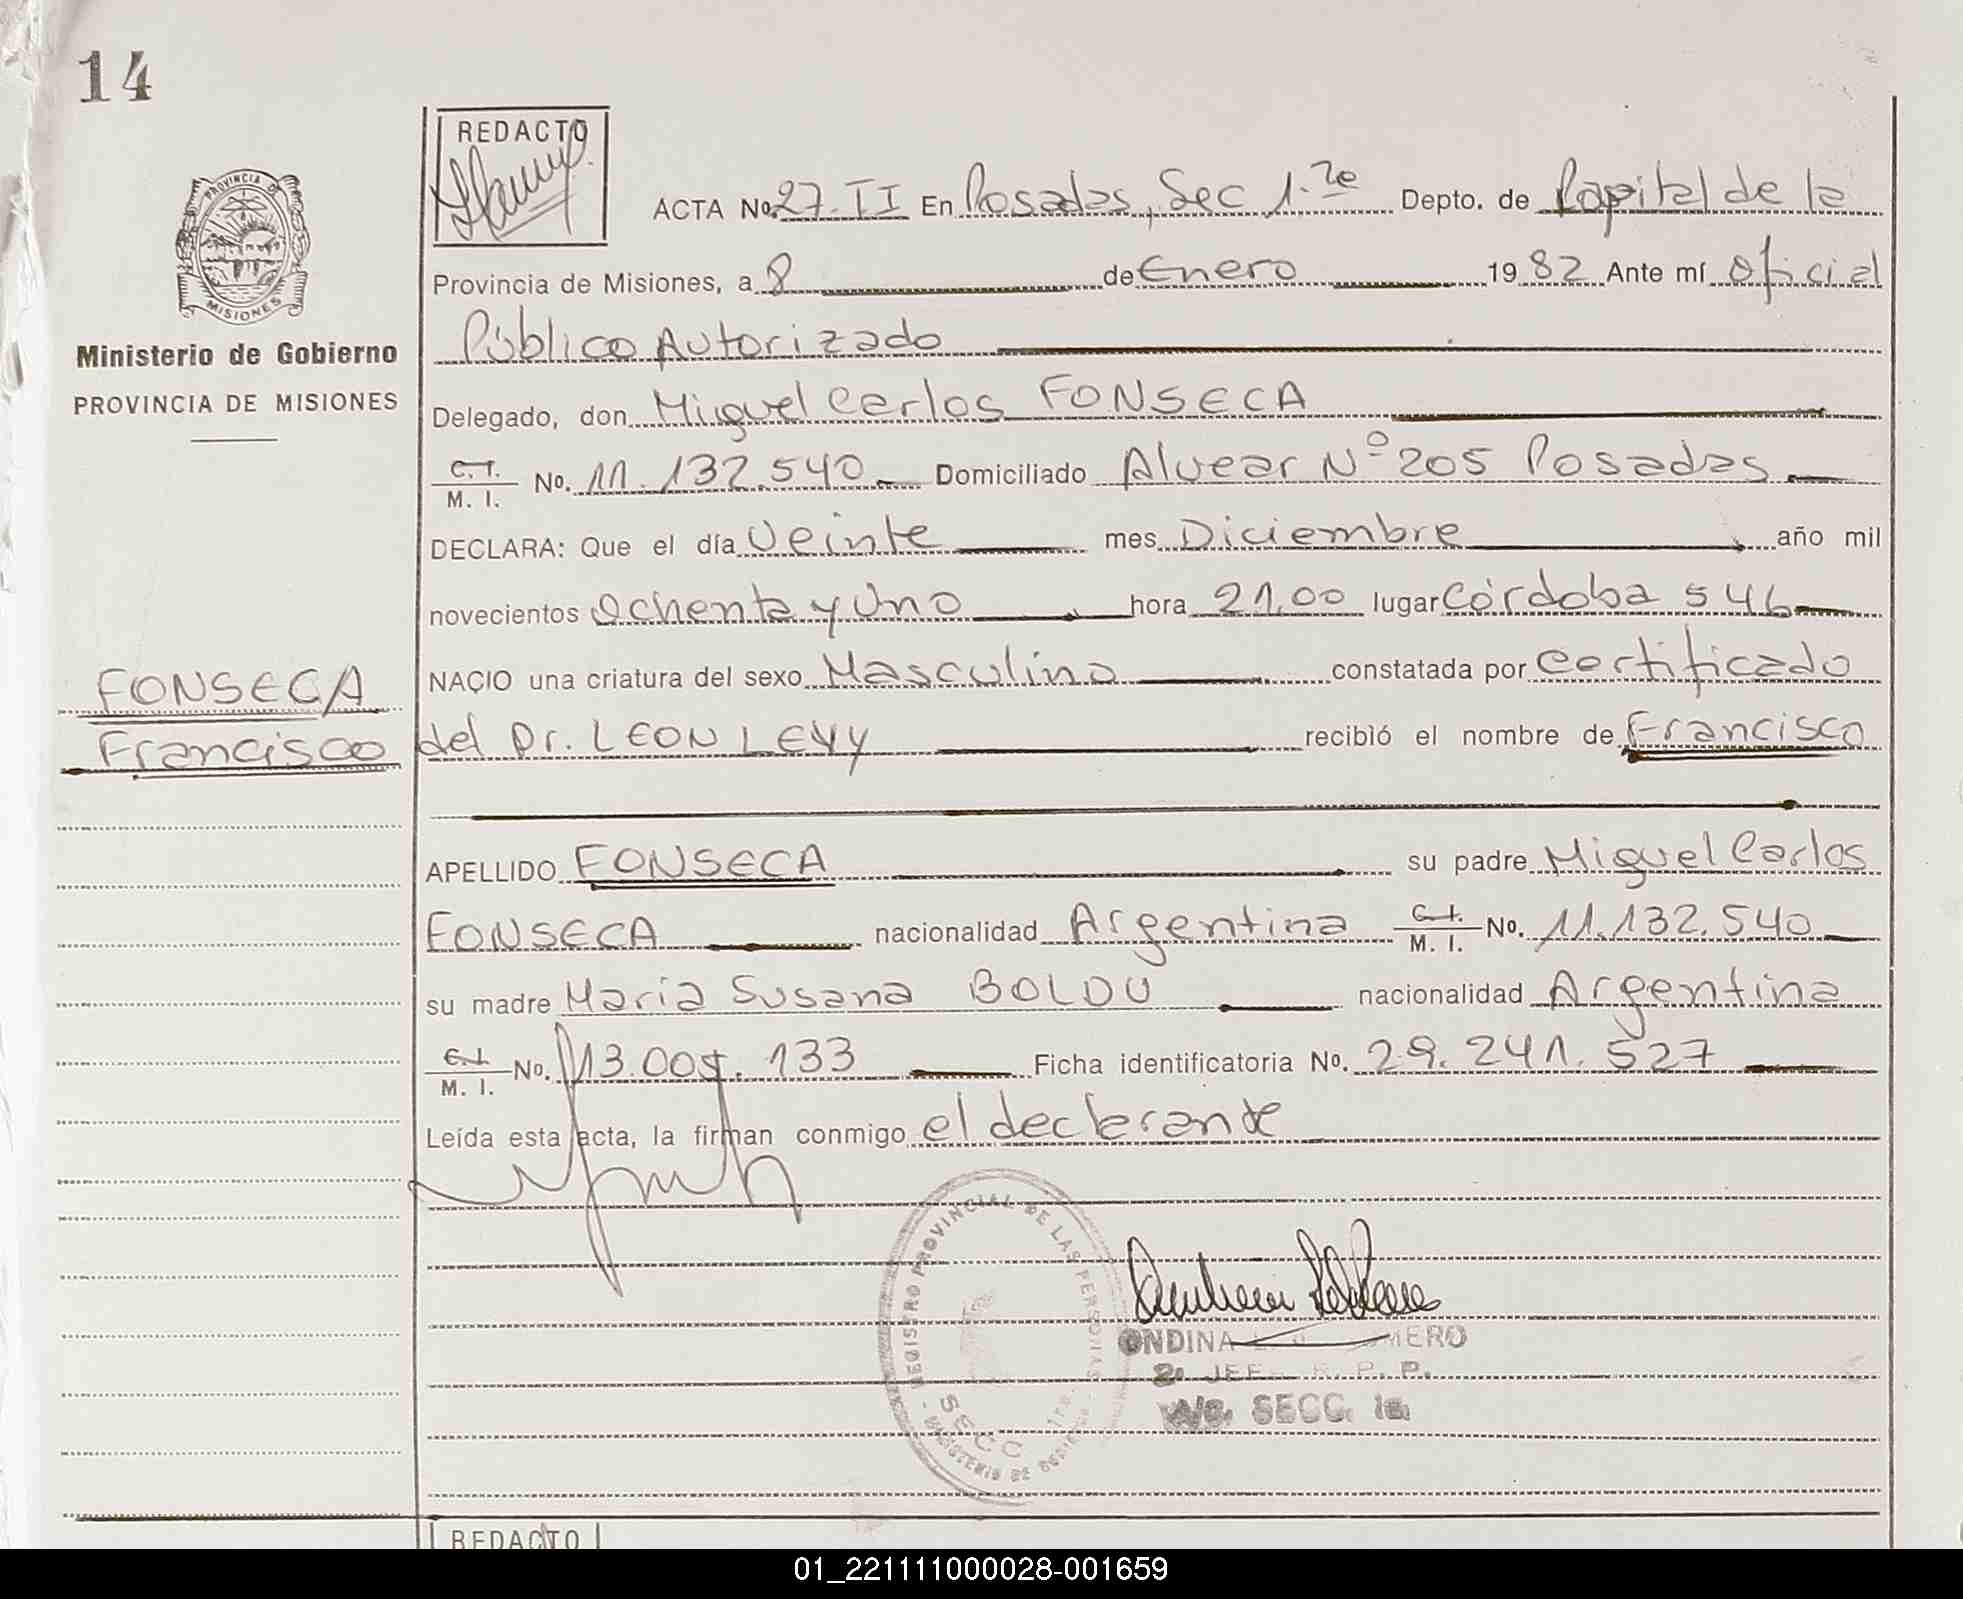 14
REDACTO
PROVINCIA DE
MISIONES
Ministerio de Gobierno
PROVINCIA DE MISIONES
ACTA No. 27-II En Posadas, Sec 1.ra Depto. de Capital de la
Provincia de Misiones, a 8 de Enero 1982 Ante mí Oficial
Público Autorizado
Delegado, don Miguel Carlos FONSECA
C.I. M. I. No. 11.132.540 Domiciliado Alvear Nº 205 Posadas
DECLARA: Que el día Veinte mes Diciembre año mil
novecientos Ochenta y Uno hora 21,00 lugar Córdoba 546
FONSECA
Francisco
NACIO una criatura del sexo Masculino constatada por Certificado
del Dr. LEON LEVY recibió el nombre de Francisco
APELLIDO FONSECA su padre Miguel Carlos
FONSECA nacionalidad Argentina C.I. M. I. No. 11.132.540
su madre María Susana BOLDU nacionalidad Argentina
C.I. M. I. No. 13.005.133 Ficha identificatoria No. 29.241.527
Leída esta acta, la firman conmigo el declarante
REGISTRO PROVINCIAL DE LAS PERSONAS
SECC 1ra.
MINISTERIO DE GOBIERNO
ONDINA MERO
2. JEF R. P. P.
SECC. 1a
REDACTO
01_221111000028-001659